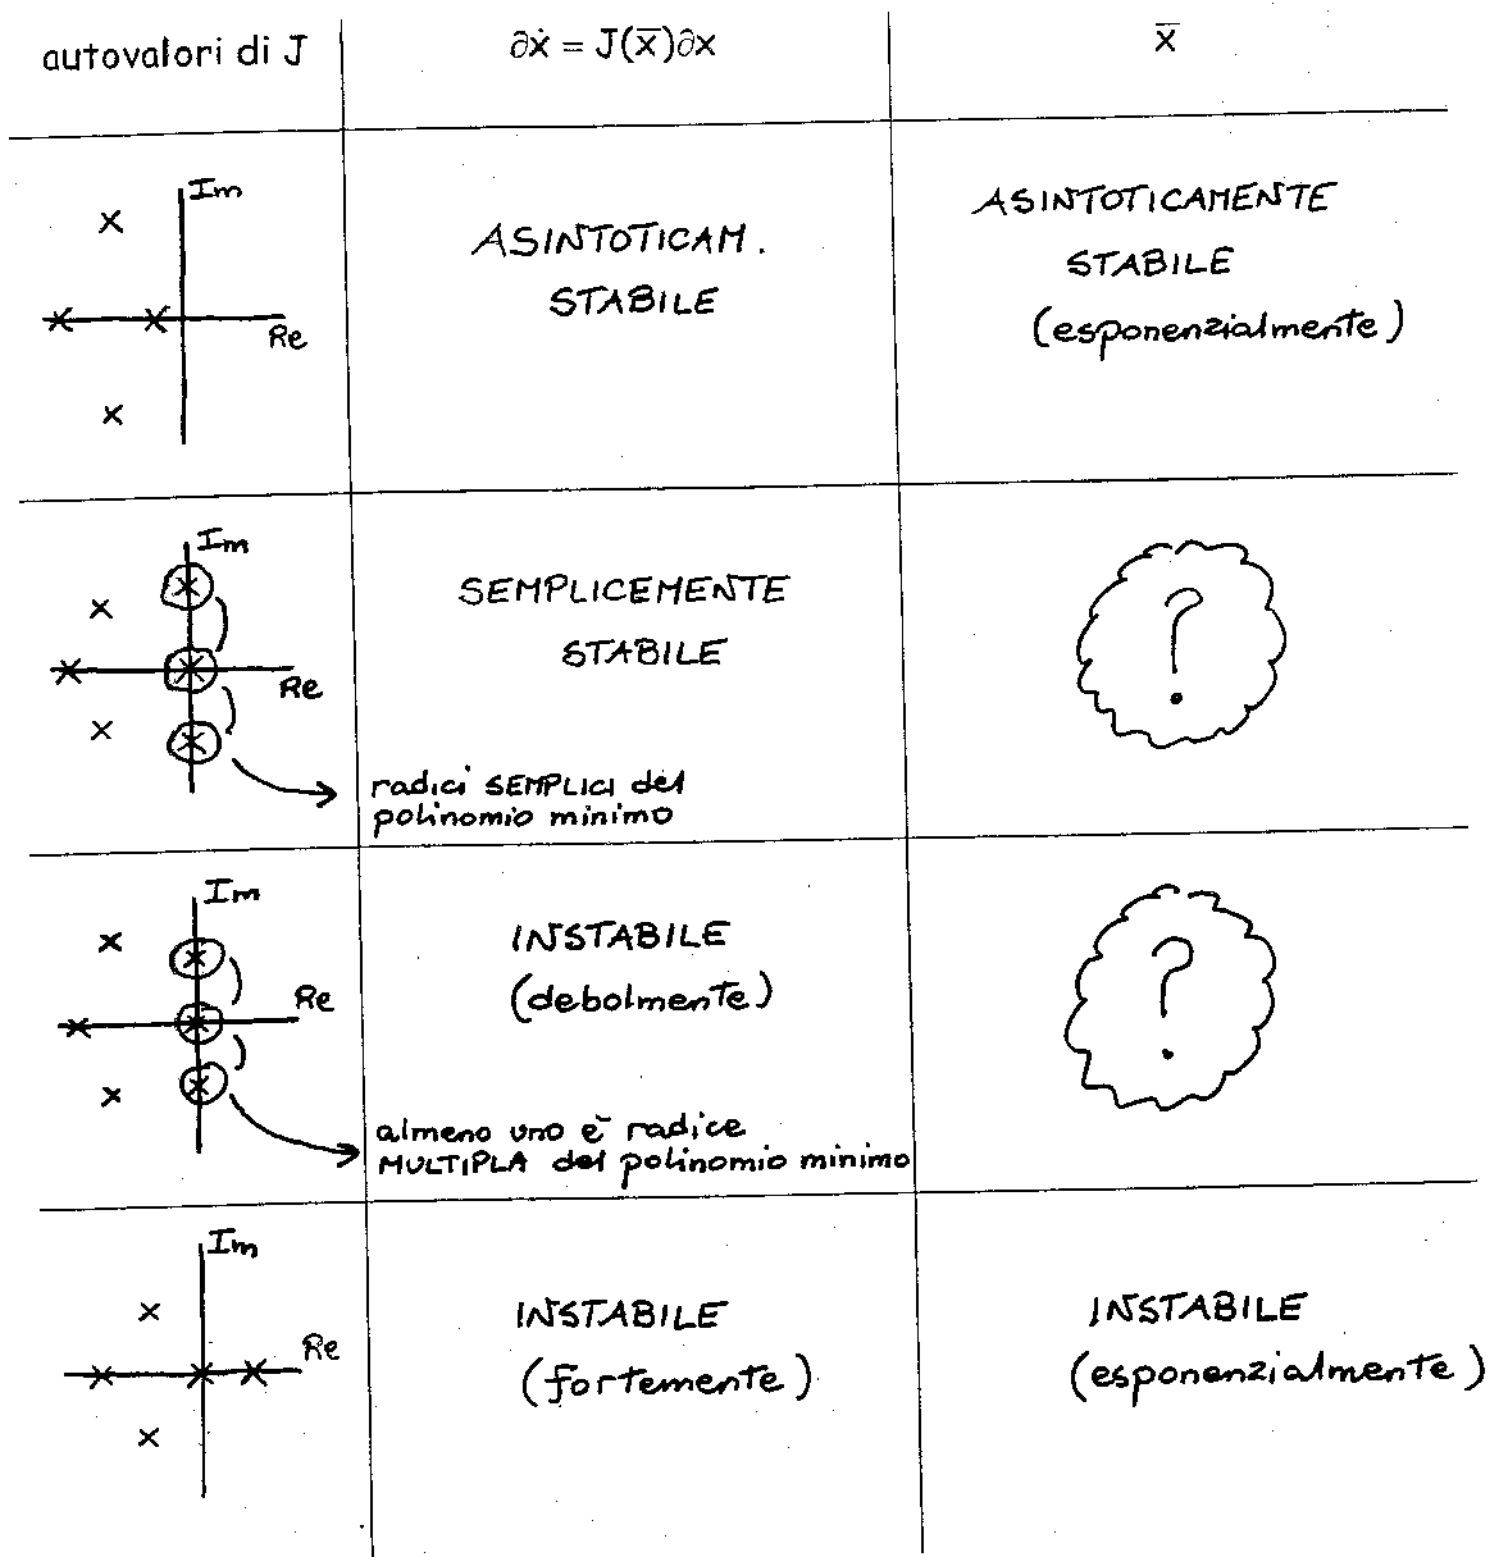 autovalori di J
∂ẋ = J(x̄)∂x
x̄
Im
Re
ASINTOTICAM.
STABILE
ASINTOTICAMENTE
STABILE
(esponenzialmente)
Im
Re
SEMPLICEMENTE
STABILE
radici SEMPLICI del
polinomio minimo
?
Im
Re
INSTABILE
(debolmente)
almeno uno è radice
MULTIPLA del polinomio minimo
?
Im
Re
INSTABILE
(fortemente)
INSTABILE
(esponenzialmente)